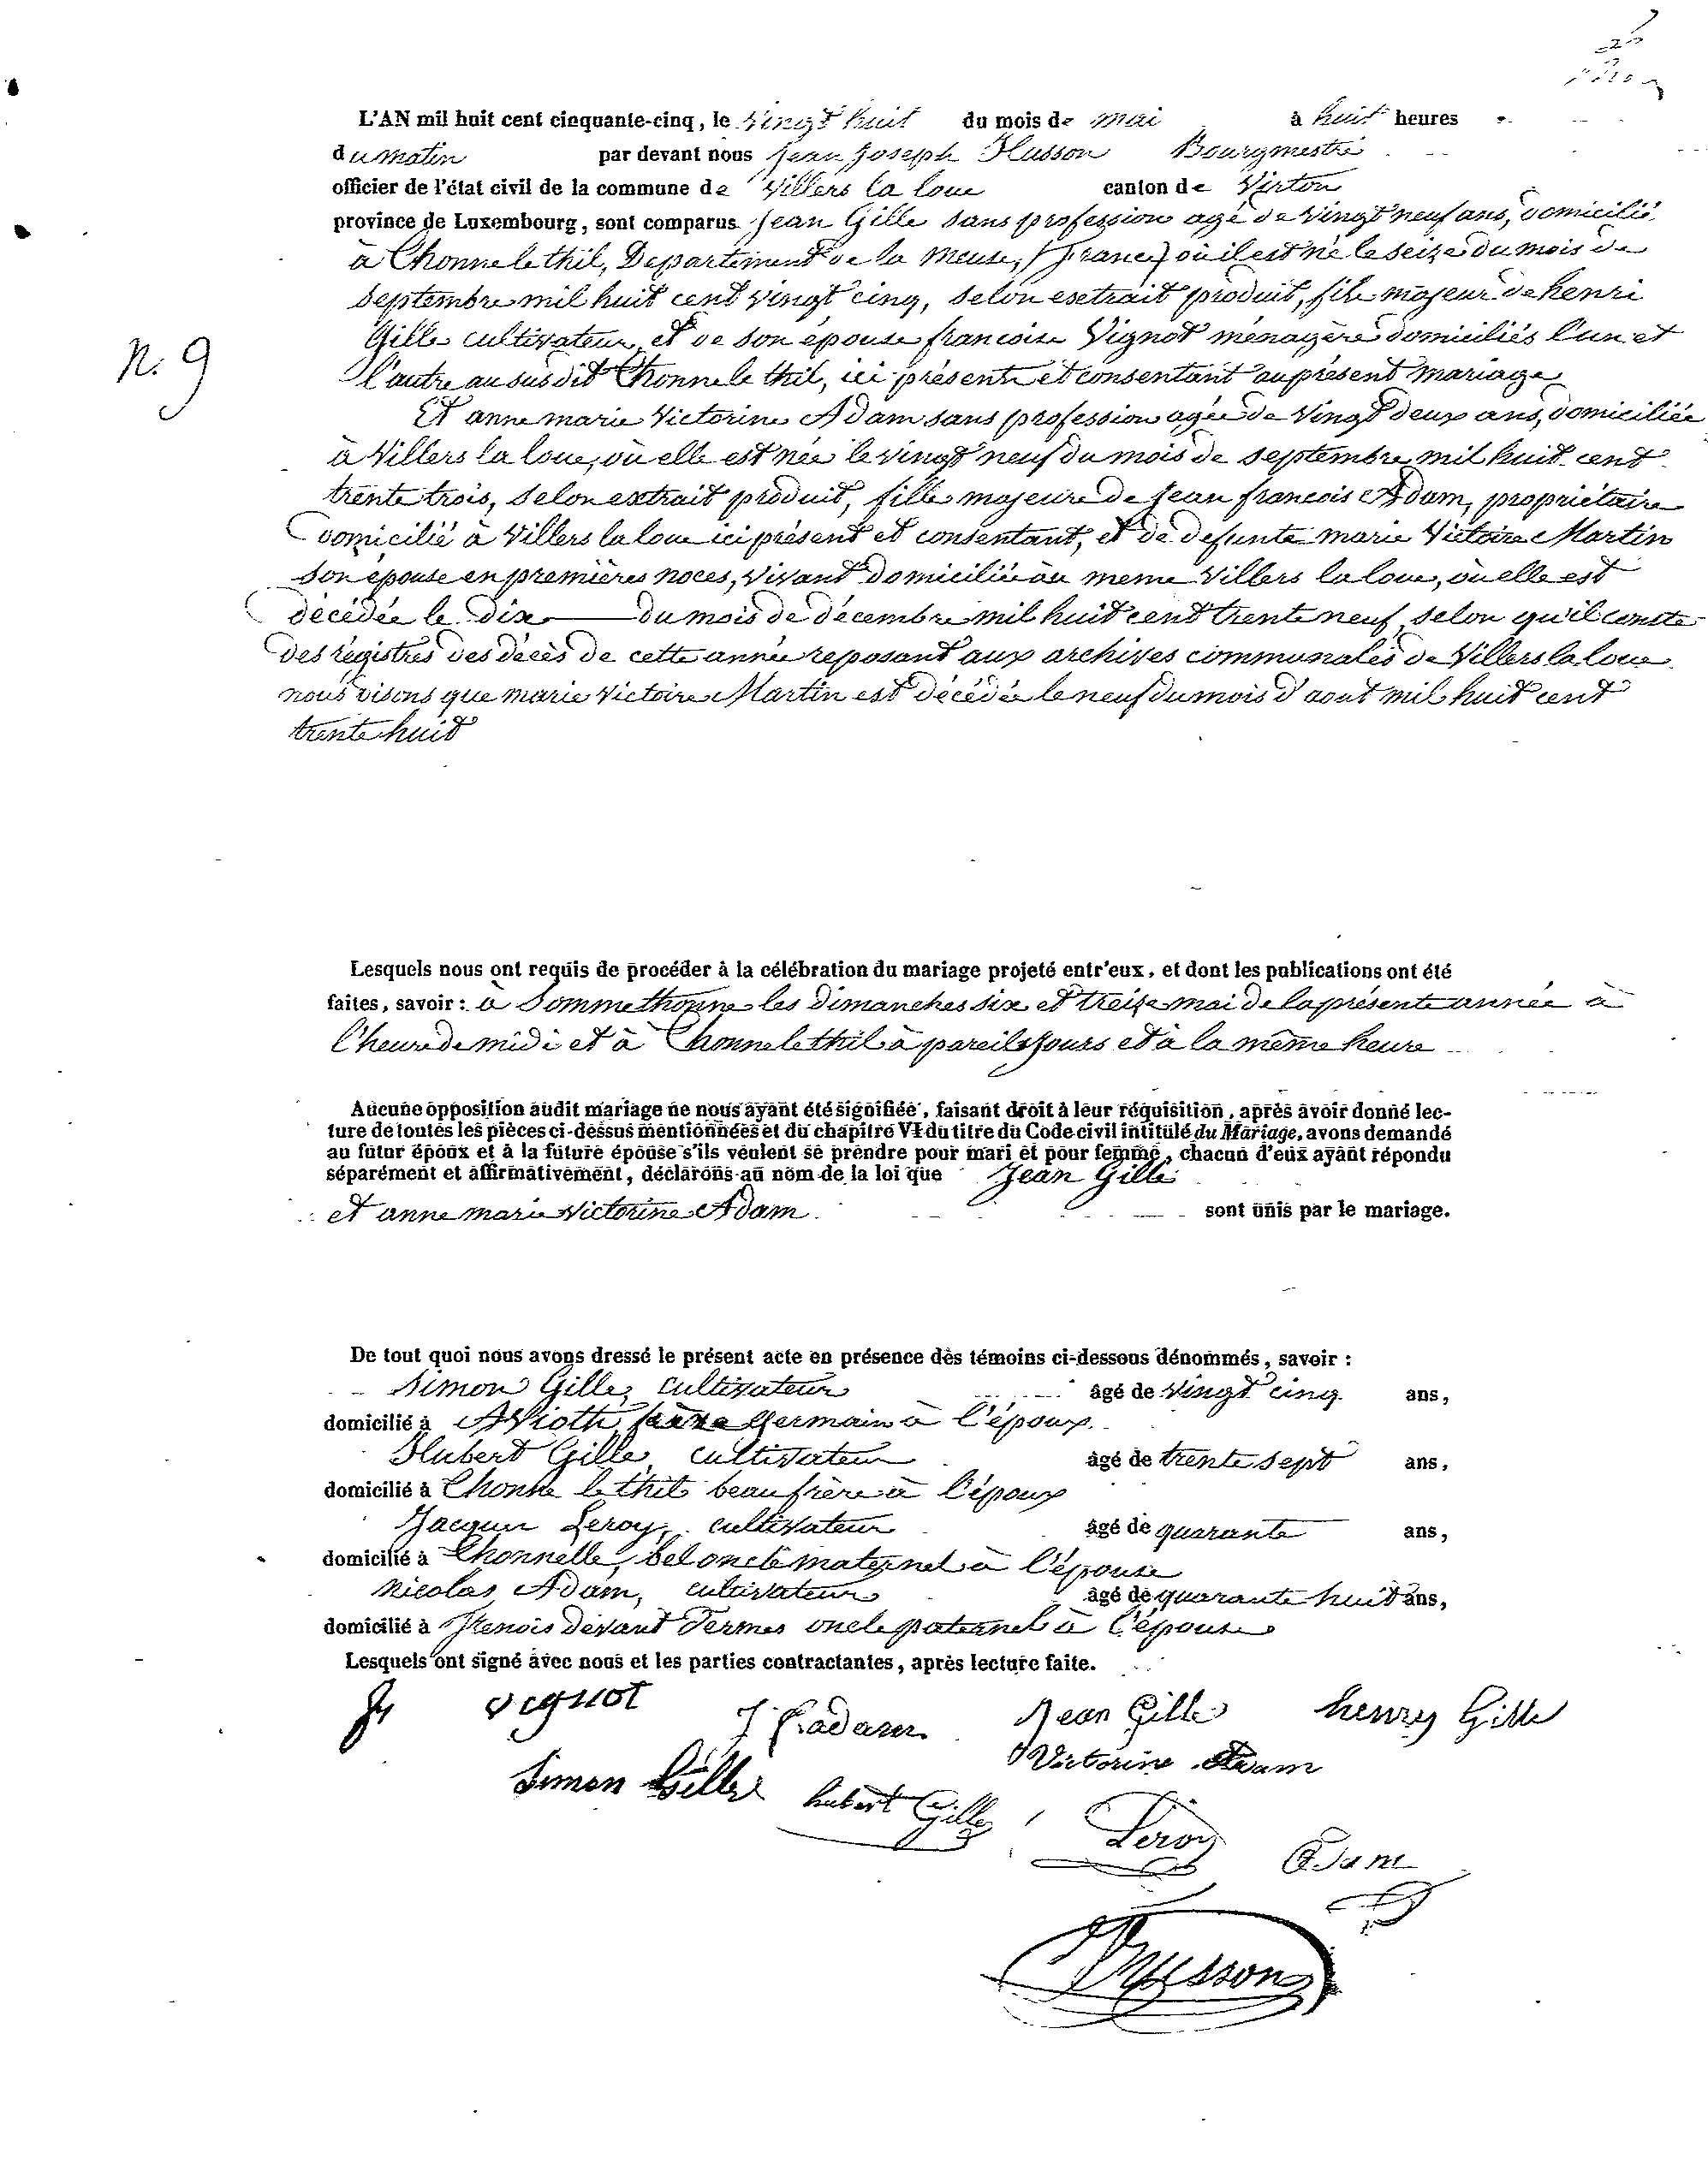 L'AN mil huit cent cinquante-cinq, le vingt huit du mois de mai à huit heures
du matin par devant nous jean joseph Husson Bourgmestre
officier de l'état civil de la commune de Villers la loue canton de Virton
province de Luxembourg, sont comparus jean Gille sans profession agé de vingt neuf ans, domicilié
à Thonne le thil, Departement de la Meuse, (france) où il est né le seize du mois de
septembre mil huit cent vingt cinq, selon extrait produit, fils majeur de henri
Gille cultivateur, et de son épouse francoise Vignot ménagère domiciliés l'un et
l'autre au susdit Thonne le thil, ici présents et consentant au présent mariage
Et anne marie Victorine Adam sans profession agée de vingt deux ans, domiciliée
à Villers la loue, où elle est née le vingt neuf du mois de septembre mil huit cent
trente trois, selon extrait produit, fille majeure de jean francois Adam, propriétaire
domicilié à Villers la loue ici présent et consentant, et de defunte marie Victoire Martin
son épouse en premières noces, vivant domiciliée au meme Villers la loue, où elle est
décédée le dix du mois de décembre mil huit cent trente neuf, selon qu'il conste
des régistres des décès de cette année reposant aux archives communales de Villers la loue
nous disons que marie victoire Martin est décédée le neuf du mois d'aout mil huit cent
trente huit
N. 9
Lesquels nous ont requis de procéder à la célébration du mariage projeté entr'eux, et dont les publications ont été
faites, savoir : à Sommethonne les dimanches six et treize mai de la présente année à
l'heure de midi et à Thonne le thil à pareils jours et à la même heure
Aucune opposition audit mariage ne nous ayant été signifiée, faisant droit à leur réquisition, après avoir donné lec-
ture de toutes les pièces ci-dessus mentionnées et du chapitre VI du titre du Code civil intitulé du Mariage, avons demandé
au futur époux et à la future épouse s'ils veulent se prendre pour mari et pour femme, chacun d'eux ayant répondu
séparément et affirmativement, déclarons au nom de la loi que Jean Gille
et anne marie victorine Adam sont unis par le mariage.
De tout quoi nous avons dressé le présent acte en présence des témoins ci-dessous dénommés, savoir :
Simon Gille, cultivateur âgé de vingt cinq ans,
domicilié à Avioth, germain à l'époux
Hubert Gille, cultivateur âgé de trente sept ans,
domicilié à Thonne le thil beau frère à l'époux
Jacques Leroy, cultivateur âgé de quarante ans,
domicilié à Thonnelle, bel oncle maternel à l'épouse
Nicolas Adam, cultivateur âgé de quarante huit ans,
domicilié à devant oncle paternel à l'épouse
Lesquels ont signé avec nous et les parties contractantes, après lecture faite.
vignot J f adam Jean Gille henry Gille
Simon Gille hubert Gille Victorine Adam
Leroy Adam
Husson